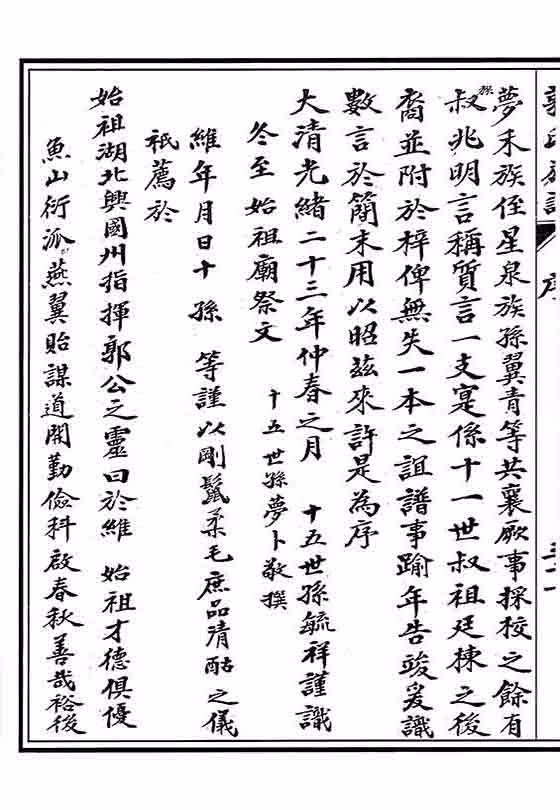 郭氏族譜 序
夢禾族侄星泉族孫翼青等共襄厥事採校之餘有
族叔兆明言稱質言一支寔係十一世叔祖廷棟之後
裔並附於梓俾無失一本之誼譜事踰年告竣爰識
數言於簡末用以昭茲來許是為序
大清光緒二十三年仲春之月 十五世孫毓祥謹識
冬至始祖廟祭文 十五世孫夢卜敬撰
維年月日十孫 等謹以剛鬣柔毛庶品清酤之儀
祇薦於
始祖湖北興國州指揮郭公之靈曰於維 始祖才德俱優
魚山衍派燕翼貽謀道開勤儉科啟春秋善哉裕後